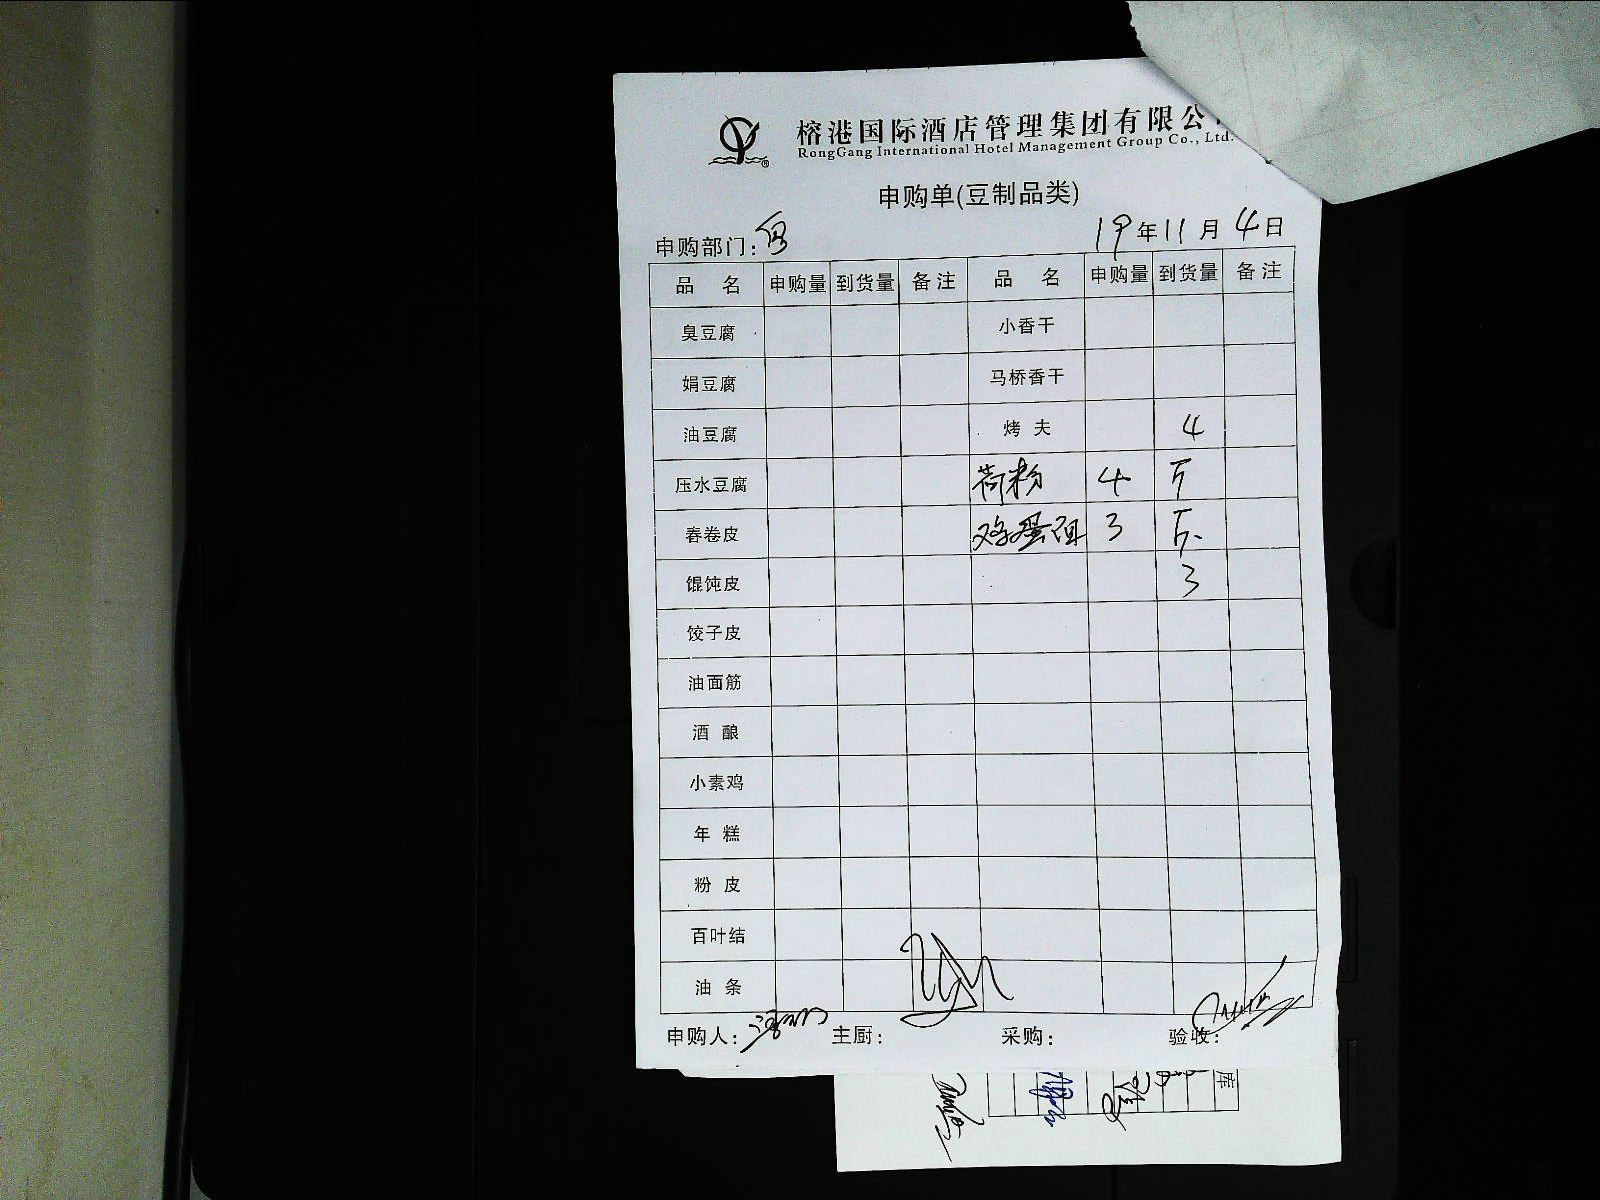 榕港国际酒店管理集团有限公
RongGang International Hotel Management Group Co., Ltd.
申购单(豆制品类)
申购部门: 19年11月4日
品 名 申购量 到货量 备注 品 名 申购量 到货量 备注
臭豆腐 小香干
娟豆腐 马桥香干
油豆腐 烤 夫 4
压水豆腐 荷粉 4 斤
春卷皮 鸡蛋 3 斤
馄饨皮 3
饺子皮
油面筋
酒 酿
小素鸡
年 糕
粉 皮
百叶结
油 条
申购人: 主厨: 采购: 验收:
库